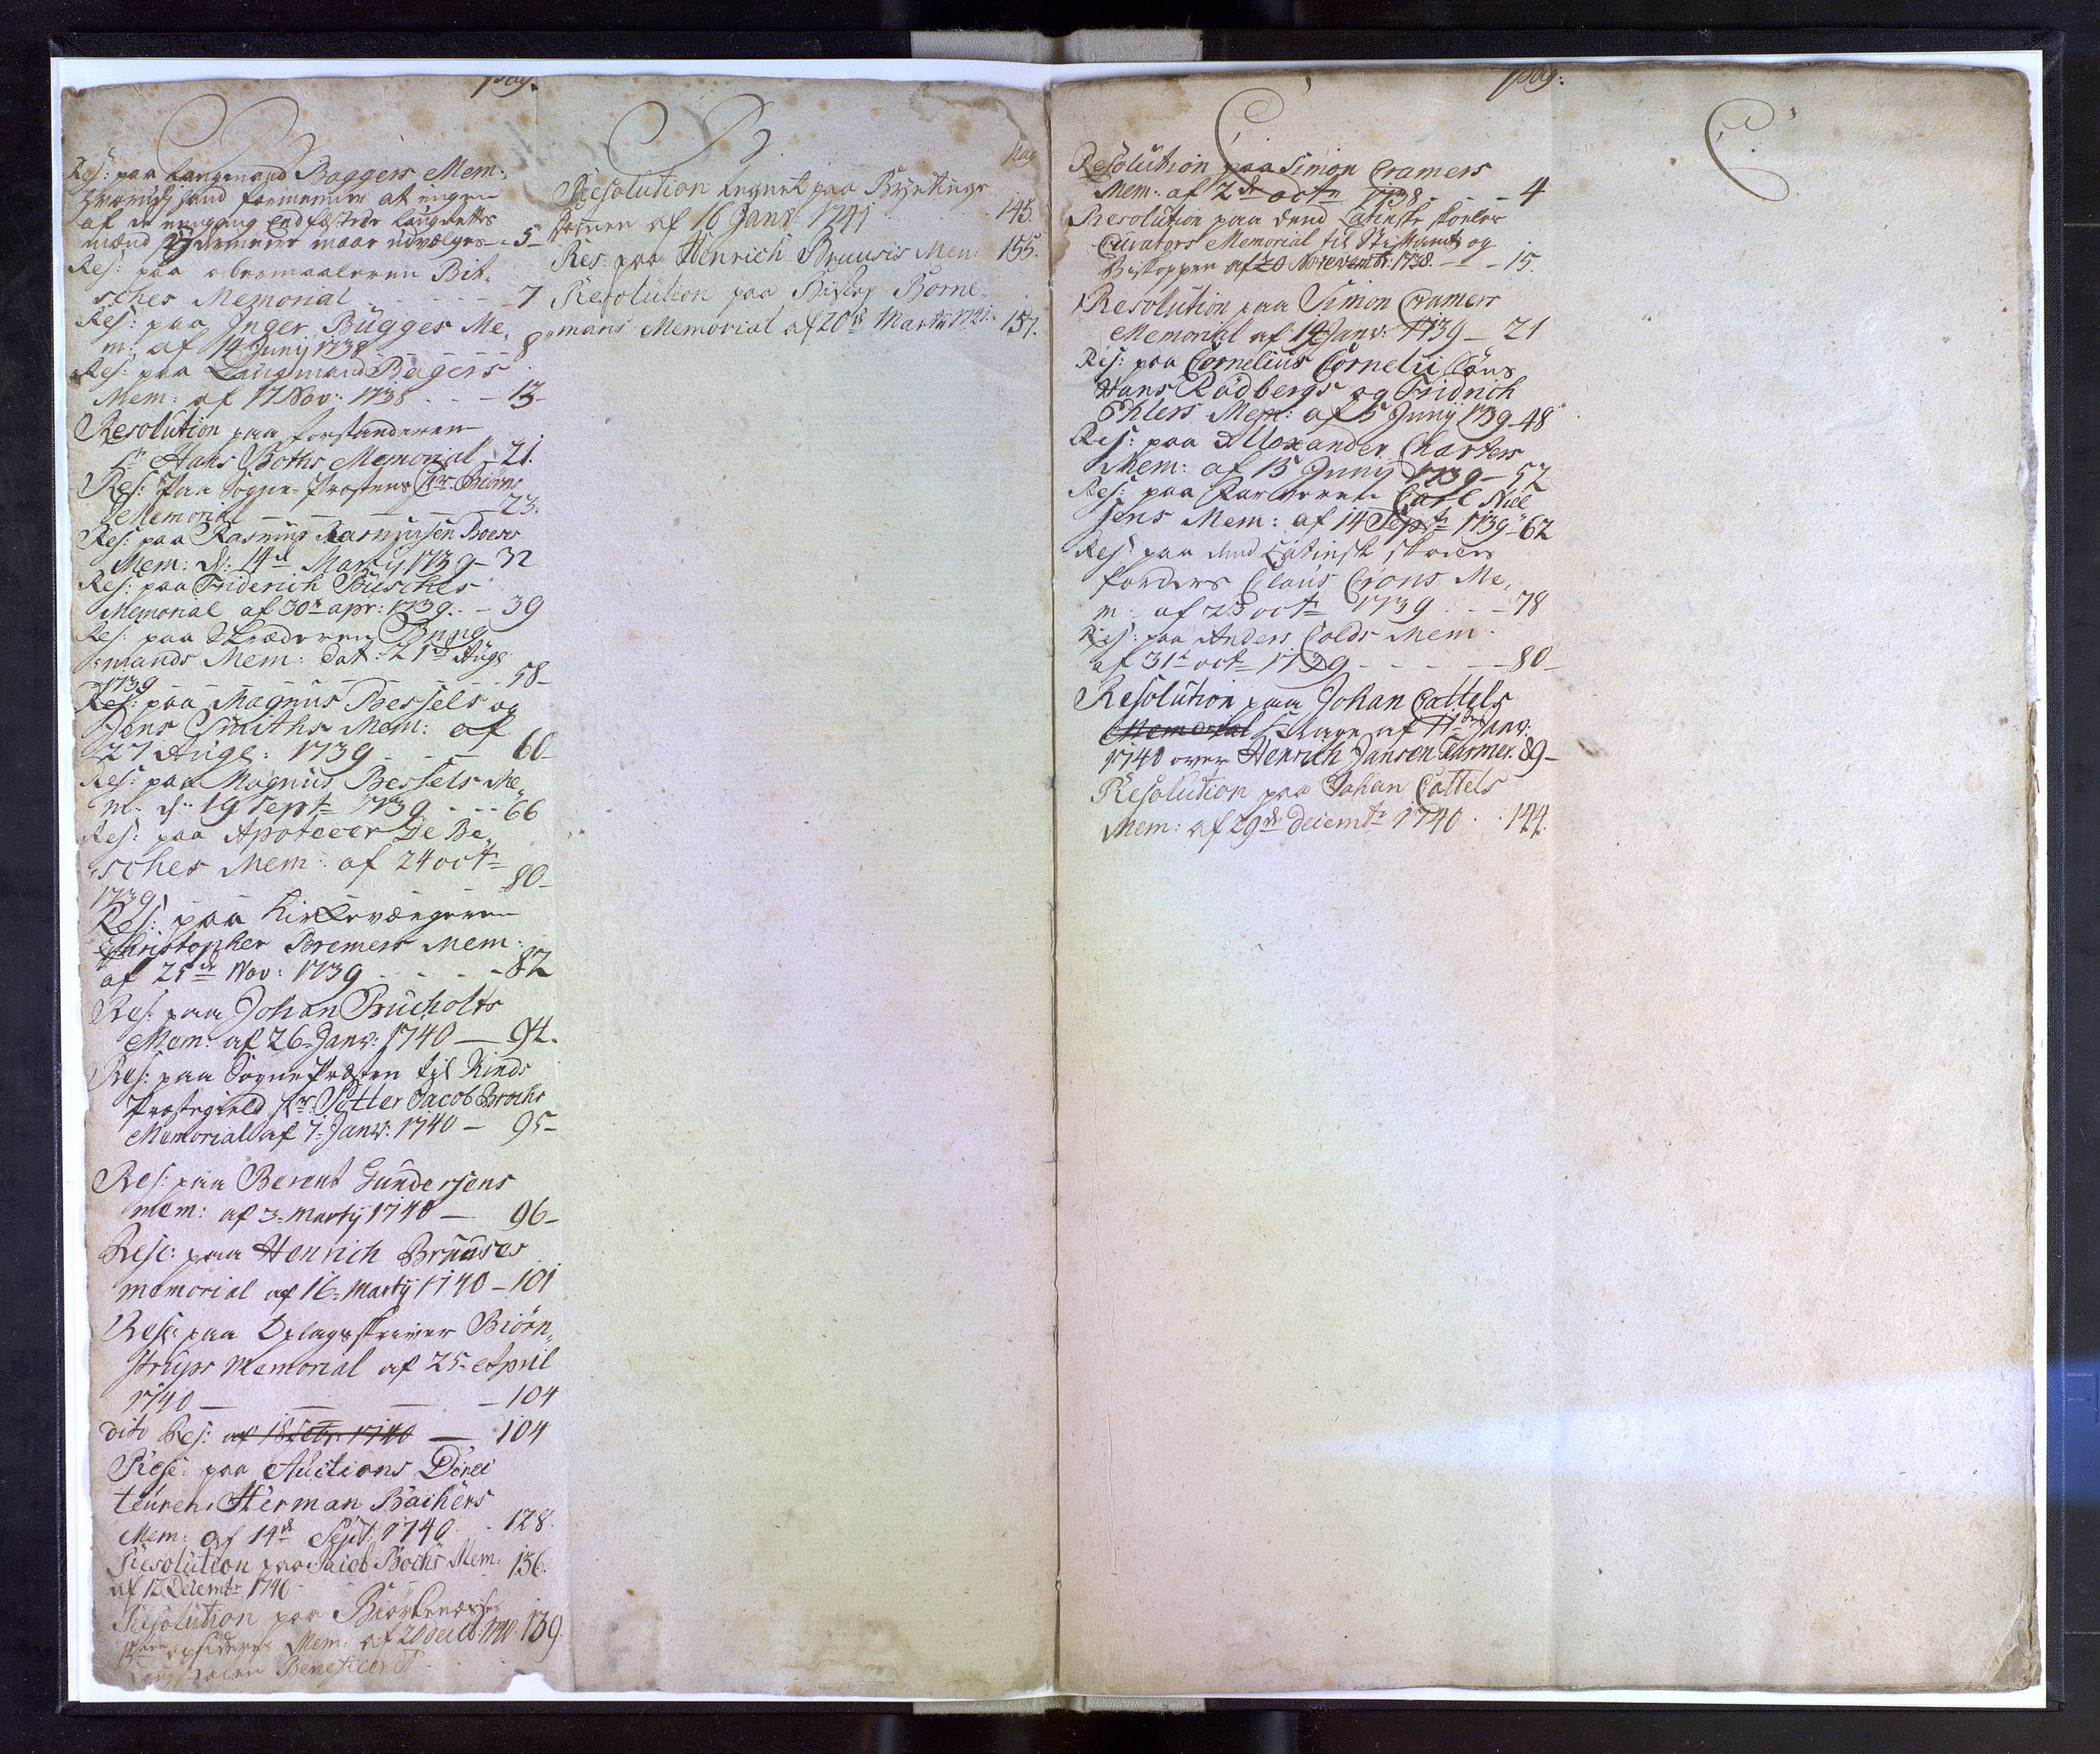 pag.
B
Res: paa Laugmand Baggers Mem:
hvorudj hand formeener at ingen
af de eengang Eedfæstede Laugretts
mænd ydermeere maae udvælges - 5 -
Res: paa Abromaaleren Bit-
sches Memorial - - - - 7
Res: paa Inger Bügges Me,
m: af 14 Junij 1738 - - - - 8
Res: paa Laugmand Bagers
Mem: af 17 Nov: 1738 - - - 13 -
Resolution paa forstanderen
Sr Hans Boths Memorial - 21.
Res: paa Sogne-Præstens Hr Biørns
Memorial - - - 23.
Res: paa Rasmus Rasmusen Boeses
Mem: d: 14de Martij 1739 - 32
Res: paa Friderich Büsches
Memorial af 30te apr: 1739 - - 39
Res: paa Skræderen Bring
=mands Mem: dat: 21de Aug:
1739 - - - - - - - 58 -
Res: paa Magnus Bessels og
Jens Smiths Mem: af
27 Aug: 1739 - - - 60 -
Res: paa Magnus Bessels Me,
m: d: 19 Septr 1739 - - - 66
Res: paa Apoteker De Be,
sches Mem: af 24 octr
1739 - - - 80 -
Res: paa Kirkeværgeren
Christopher Bremers Mem:
af 25de Nov: 1739 - - - - 82
Res: paa Johan Brucholts
Mem: af 26 Janv: 1740 — 94.
Res: paa Sognepræsten til Kinds
Præstegield Hr. Petter Jacob Brochs
Memorial af 7 Janv: 1740 - 95 -
Res: paa Berent Gundersens
mem: af 3 Martij 1740 — 96 -
Resc: paa Henrich Bruuses
memorial af 16 Martij 1740 - 101
Resc: paa Oplagsskriver Biørn,,
strups Memorial af 25 April
1740 — — — - 104
dito Res: af 18 Octr: 1740 — 104
Resc: paa Auctions Direc
teuren Herman Bachers
Mem: af 14de Sept: 1740 - 128.
Resolution paa Jacob Bochs Mem: 136.
af 12 Decembr 1740
Resolution paa Biørkenæsses
opsidderes Mem: af 20 Decbr: 1740. 139.
Beneficeret
B
pag
Resolution tegnet paa Bytings
af 16 Janv: 1741 - - 145.
Res: paa Henrich Bruusis Mem: 155.
Resolution paa Biskop Borne,,
mans Memorial af 20de Martij 1741. 157.
pag:
C
Resolution paa Simon Cramers
Mem: af 2de octr 1738 - - - 4
Resolution paa dend Latinske skoeles
Curators Memorial til Stiftamt: og
Biskoppen af 20 Novembr: 1738. - - 15.
Resolution paa Simon Cramers
Memorial af 19 Janv: 1739 - 21
Res: paa Cornelius Cornelii Cöns
Hans Rödbergs og Fridrich
Ehlers Mem: af 5 Junij 1739 - 48
Res: paa Allexander Charters
Mem: af 15 Junij 1739 - 52
Res: paa Carl Niel
sens Mem: af 14 Septr 1739 - 62
Res: paa dend Latinsk skoeles
forders Claus Crons Me,
m: af 23 octr 1739 - - 78
Res: paa Anders Colds Mem:
af 31te octr 1739 - - - - 80 -
Resolution paa Johan Cattels
Memorial Klage af 11te Janv:
1740 over Henrich Jansen Kasmer. 89 -
Resolution paa Johan Cattels
Mem: af 29de decembr 1740 - - 144.
C